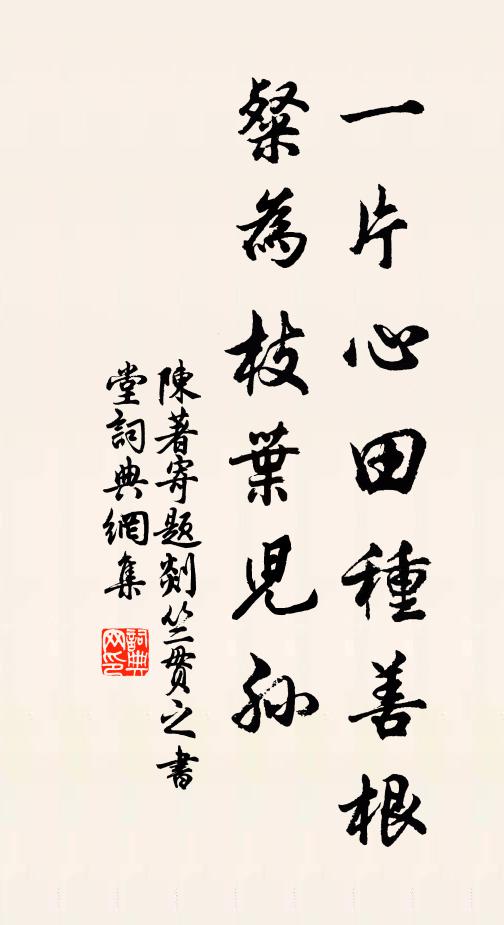 一片心田種善根
粲為枝葉兒孫
陳著寄題剡竺貫之書
堂詞典網集
詞典
网印